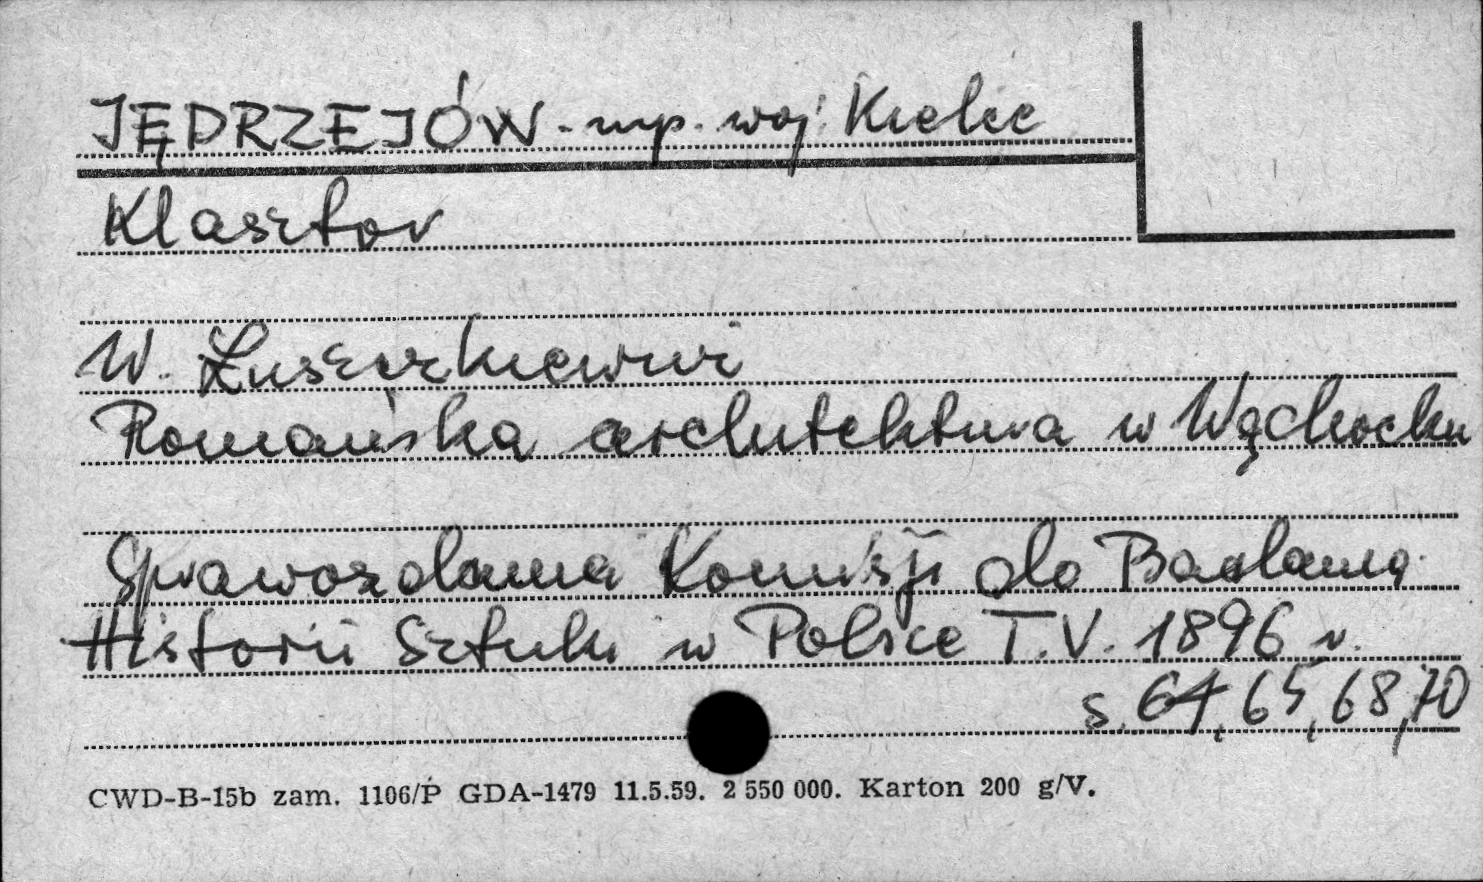 JĘDRZEJÓW - mp. woj. Kielce
Klasztor
W. Łuszczkiewicz
Romańska architektura w Wąchocku
Sprawozdania Komisji do Badania
Historii Sztuki w Polsce T.V. 1896 r.
s. 64, 65, 68, 70
CWD-B-15b zam. 1106/P GDA-1479 11.5.59. 2 550 000. Karton 200 g/V.